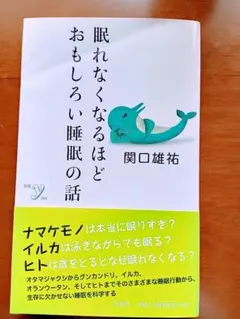 眠れなくなるほど
おもしろい睡眠の話
関口雄祐
ナマケモノは本当に眠りすぎ?
イルカは泳ぎながらでも眠る?
ヒトは歳をとるとなぜ眠れなくなる?
オタマジャクシからグンカンドリ、イルカ、
オランウータン、そしてヒトまでそのさまざまな睡眠行動から、
生存に欠かせない睡眠を科学する